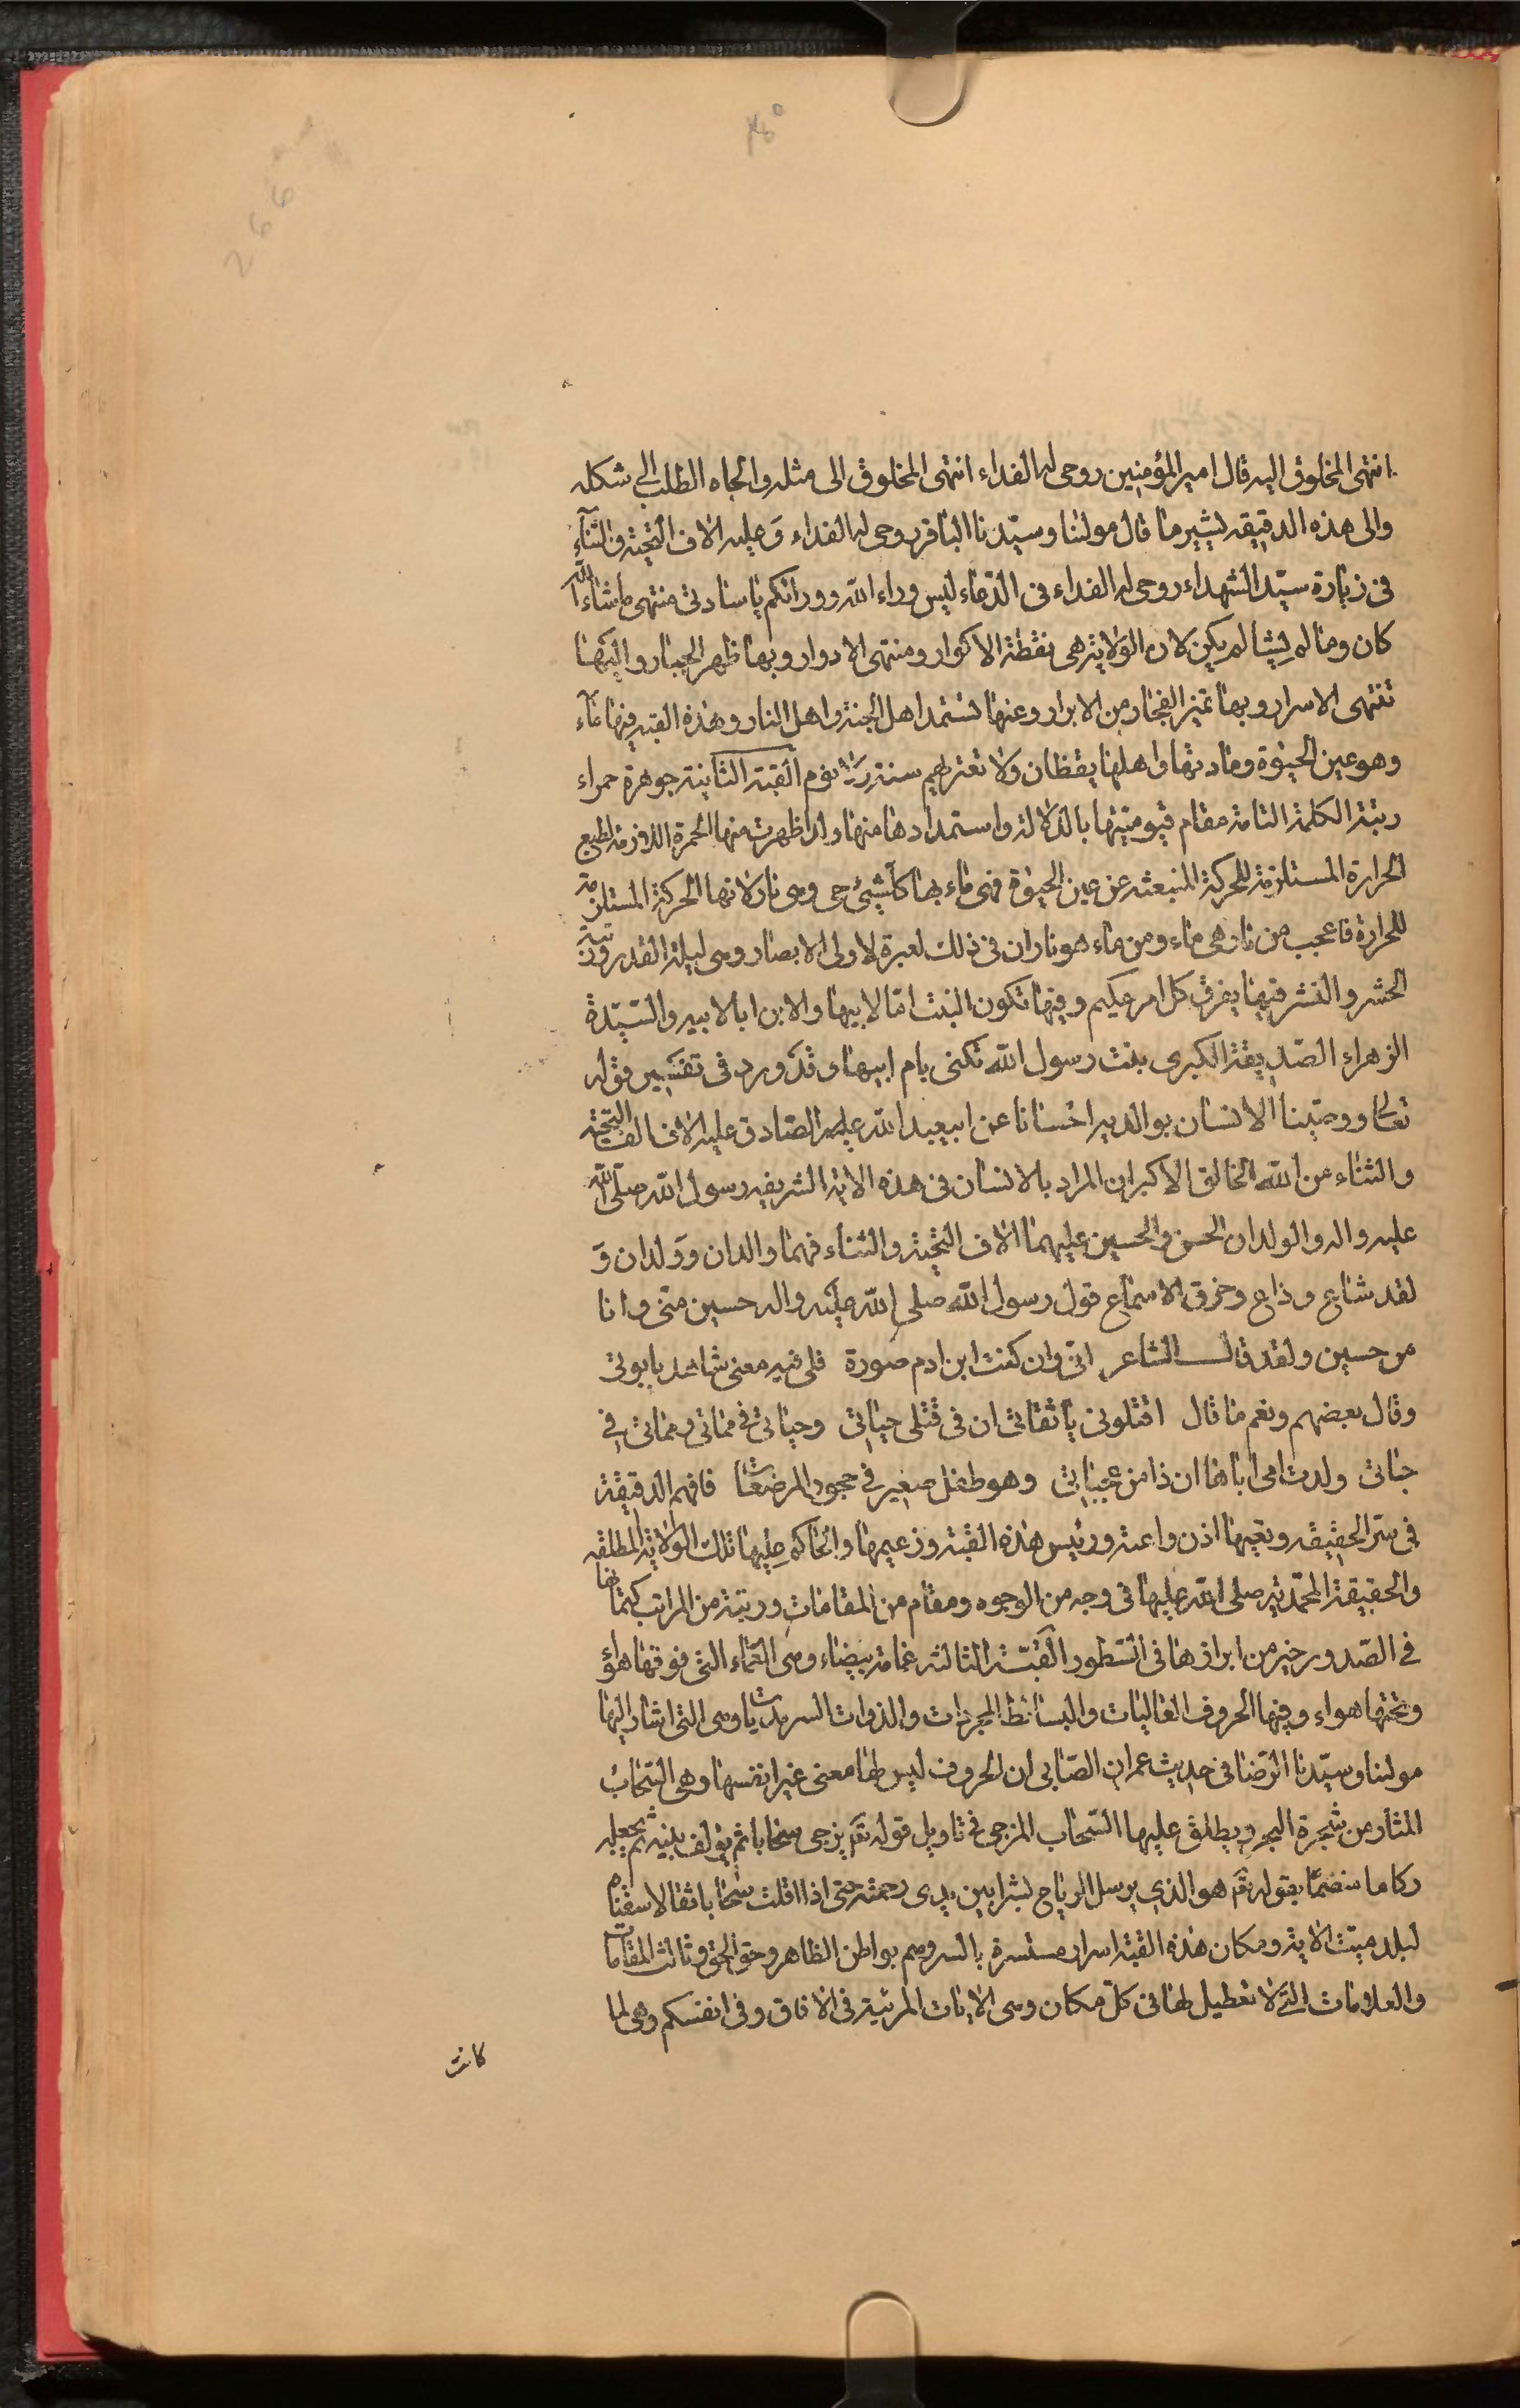 انتهى المخلوق اليه قال امير المؤمنين روحى له الفداء انتهى المخلوق الى مثله والجاه الطلب الى شكله
والى هذه الدقيقه يشير ما قال مولنا وسيّدنا الباقر روحى له الفداء وَ عليه الاف التحيّة والثنآء
فى زيارة سيّد الشهداء روحى له الفداء فى الدّعاء ليس وراء الله وورائكم يا سادتى منتهى ما شاء الله
كان وما لم يشأ لم يكن لان الولاية هى نقطة الاكوار ومنتهى الادوار وبها ظهر الجبار واليها
تنتهى الاسرار وبها تميز الفجار من الابرار وعنها تستمد اهل الجنة واهل النار وهذه القبه فيها مآء
وهو عين الحيوة ومادتها واهلها يقظان ولا تعتريهم سنة ولا نوم القبة الثانية جوهرة حمراء
رتبة الكلمة التامة مقام قيوميتها بالدلالة واستمدادها منها ولذا ظهرت منها الحمرة اللازمة لطبع
الحرارة المستلزمة للحركة المنبعثه عن عين الحيوة فهى ماء بها كل شيئ حى وهى نار لانها الحركة المستلزمة
للحرارة فاعجب من نار هى ماء ومن ماء هو نار ان فى ذلك لعبرة لاولى الابصار وهى ليلة القدر ورتبة
الحشر والنشر فيها يفرق كل امر حكيم وفيها تكون البنت امّا لابيها والابن ابا لابيه والسّيّدة
الزهراء الصّديقة الكبرى بنت رسول الله تكنى بام ابيها وقد ورد فى تفسير قوله
تعالى ووصّينا الانسان بوالديه احسانا عن ابيعبد الله عليه الصّادق عليه الاف الف التحيّة
والثناء من الله الخالق الاكبر ان المراد بالانسان فى هذه الاية الشريفه رسول الله صلى الله
عليه واله والولدان الحسن والحسين عليهما الاف التحيّة والثناء فهما والدان وَولدان وَ
لقد شاع وذاع وخرق الاسماع قول رسول الله صلى الله عليه واله حسين منّى وانا
من حسين ولقد قال الشاعر انى وان كنت ابن ادم صورة فلى فيه معنى شاهد بابوتى
وقال بعضهم ونعم ما قال اقتلونى يا ثقاتى ان فى قتلى حياتى وحياتى فى مماتى ومماتى فى
حياتى ولدت امى اباها ان ذا من عجباتى وهو طفل صغير فى حجور المرضعات فافهم الدقيقة
فى سرّ الحقيقه وتعيها اذن واعية ورئيس هذه القبة وزعيمها والحاكم عليها تلك الولاية المطلقه
والحقيقة المحمّدية صلى الله عليها فى وجه من الوجوه ومقام من المقامات ورتبة من المراتب كتمانها
فى الصّدور خير من ابرازها فى السّطور القبّة الثالثه غمامة بيضاء وهى العماء التى فوقها هوآؤ
وتحتها هواء وفيها الحروف العاليات والبسائط المجردات والذوات السرمديات وهى التى اشار اليها
مولنا وسيّدنا الرّضا فى حديث عمران الصّابى ان الحروف ليس لها معنى غير انفسها وهى السّحابُ
المثار من شجرة البحر ويطلق عليها السّحاب المزجى فى تاويل قوله تعَ يزجى سحابا ثم يؤلف بينه ثم يجعله
ركاما بقوله تعَ هو الذي يرسل الرياح بشرا بين يدى رحمته حتى اذا اقلت سحابا ثقالا سقناه
لبلد ميّت الاية ومكان هذه القبة اسرار مستسرة بالسر ومم بواطن الظاهر وحق الحق وثالث المقامات
والعلامات التى لا تعطيل لها فى كلّ مكان وهى الايات المرئية فى الافاق وفى انفسكم وهى لما
كانت